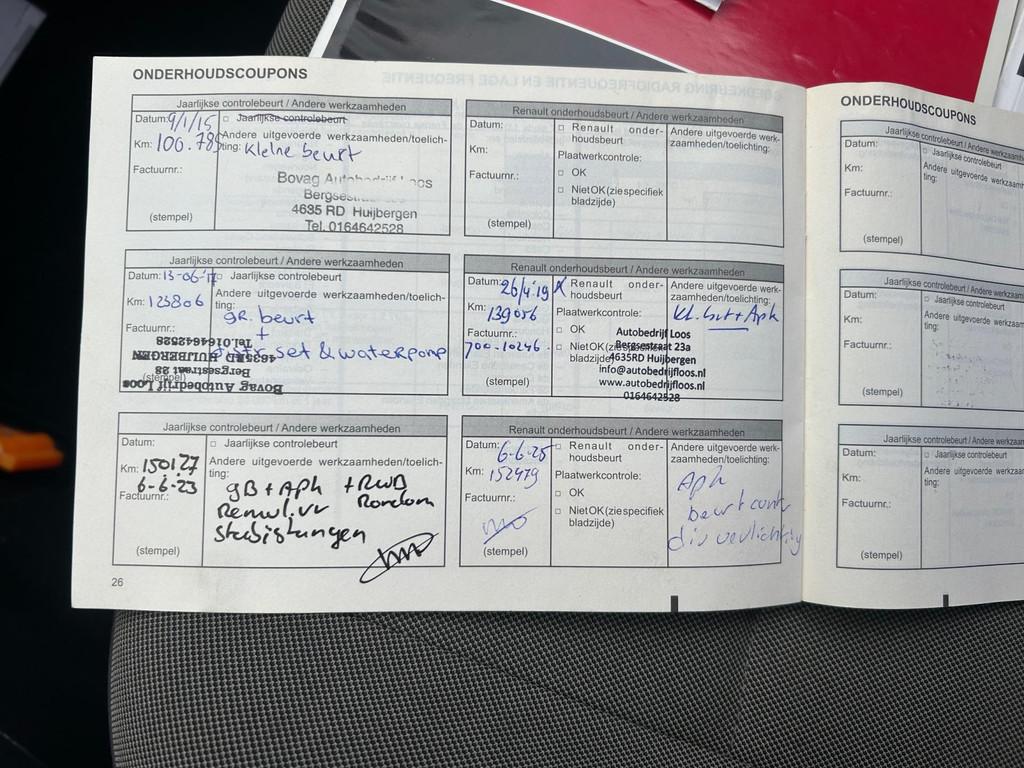 ONDERHOUDSCOUPONS
Jaarlijkse controlebeurt / Andere werkzaamheden
Datum: 9/1/15
□ Jaarlijkse controlebeurt
Km: 100.789
Andere uitgevoerde werkzaamheden/toelich-
ting: kleine beurt
Factuurnr.:
Bovag Autobedrijf Loos
Bergsestraat
4635 RD Huijbergen
Tel. 0164642528
(stempel)
Renault onderhoudsbeurt / Andere werkzaamheden
Datum:
Km:
Factuurnr.:
(stempel)
□ Renault onder-
houdsbeurt
Plaatwerkcontrole:
□ OK
□ Niet OK (zie specifiek
bladzijde)
Andere uitgevoerde werk-
zaamheden/toelichting:
Jaarlijkse controlebeurt / Andere werkzaamheden
Datum: 13-06-'17
□ Jaarlijkse controlebeurt
Km: 123806
Andere uitgevoerde werkzaamheden/toelich-
ting:
gR. beurt
+
set & waterpomp
Factuurnr.:
(stempel)
Bovag Autobedrijf Loos
Bergsestraat 23
4635RD HUIJBERGEN
Tel.0164642528
Renault onderhoudsbeurt / Andere werkzaamheden
Datum: 26/4'19
Km: 139056
Factuurnr.:
700-10246
(stempel)
X Renault onder-
houdsbeurt
Plaatwerkcontrole:
□ OK
□ Niet OK (zie specifiek
bladzijde)
Andere uitgevoerde werk-
zaamheden/toelichting:
kl. beurt + Apk
Autobedrijf Loos
Bergsestraat 23a
4635RD Huijbergen
info@autobedrijfloos.nl
www.autobedrijfloos.nl
0164642528
Jaarlijkse controlebeurt / Andere werkzaamheden
Datum:
□ Jaarlijkse controlebeurt
Km: 150127
6-6-23
Factuurnr.:
(stempel)
Andere uitgevoerde werkzaamheden/toelich-
ting:
gB + APk + RWB
Remvl. vv Rondom
stabistangen
Renault onderhoudsbeurt / Andere werkzaamheden
Datum: 6-6-25
Km: 152479
Factuurnr.:
(stempel)
□ Renault onder-
houdsbeurt
Plaatwerkcontrole:
□ OK
□ Niet OK (zie specifiek
bladzijde)
Andere uitgevoerde werk-
zaamheden/toelichting:
Apk
beurt cont
div verlichting
26
ONDERHOUDSCOUPONS
Jaarlijkse controlebeurt / Andere werkzaamh
Datum:
□ Jaarlijkse controlebeurt
Km:
Andere uitgevoerde werkzaamhed
ting:
Factuurnr.:
(stempel)
Jaarlijkse controlebeurt / Andere werkzaamh
Datum:
□ Jaarlijkse controlebeurt
Km:
Andere uitgevoerde werkzaamhe
ting:
Factuurnr.:
(stempel)
Jaarlijkse controlebeurt / Andere werkzaam
Datum:
□ Jaarlijkse controlebeurt
Km:
Andere uitgevoerde werkzaamhe
ting:
Factuurnr.:
(stempel)